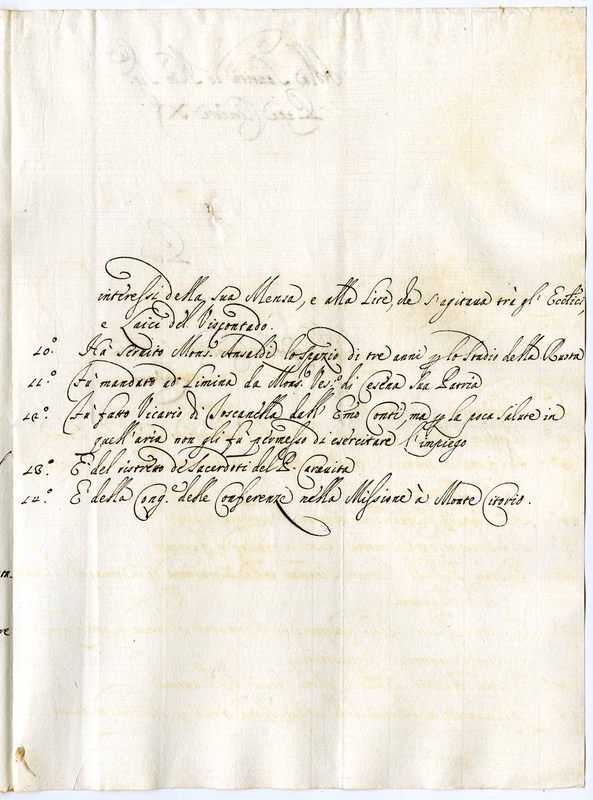 interessi della sua Mensa, e alla Lite, che s'agitaua trà gl' Ecc.tici,
e Laici del Viscontado.
10.° Hà seruito Mons. Ansaldi lo spazio di tre anni p lo studio della Ruota
11.° Fù mandato ad Limina da Mons. Ves.° di Cesena sua Patria
12.° Fu fatto Vicario di Toscanella dall' Emo Conti, ma p la poca salute in
quell'aria non gli fu permesso di esercitare l'impiego
13.° E' del ristretto de Sacerdoti del P. Carauita
14.° E' della Cong.e delle Conferenze nella Missione à Monte Citorio.